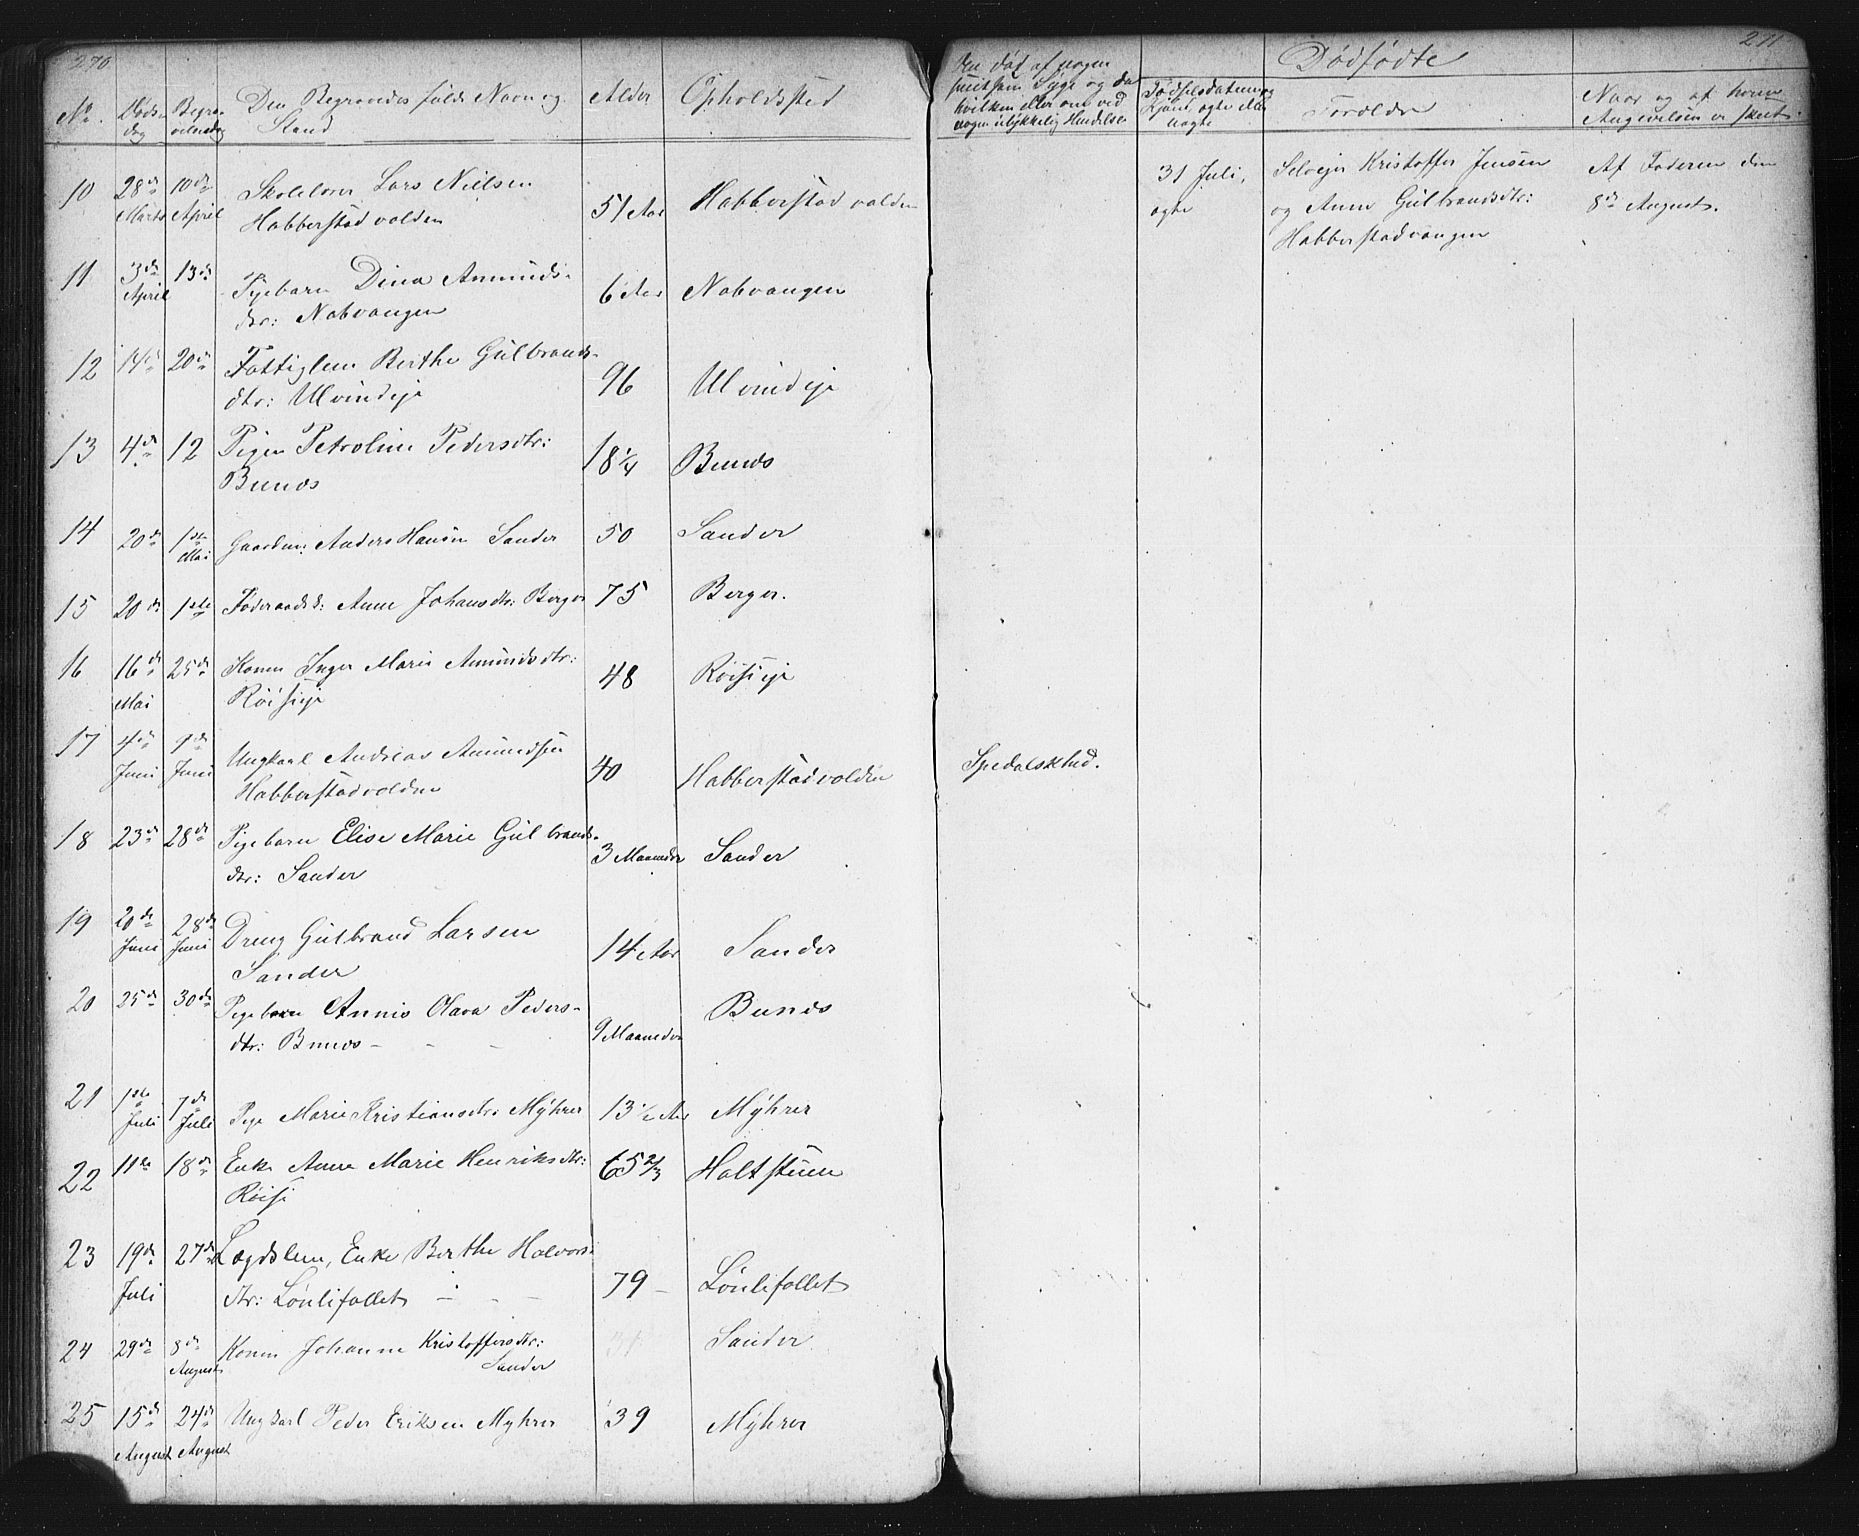 270
No. Døds- dag Begra- velsesdag Den Begravedes fulde Navn og Stand Alder Opholdssted
10 28de Marts 10de April Skolelærer Lars Nielsen
Habberstadvolden 51 Aar Habberstadvolden
11 3de April 13de Pigebarn Dina Amunds-
dtr: Nabvangen 6 Aar Nabvangen
12 14de 20de Fattiglem Berthe Gulbrands-
dtr: Ulvindeje 96 Ulvindeje
13 4de 12 Pigen Petroline Pedersdtr:
Bunæs 18 1/4 Bunæs
14 20de 1ste Mai Gaardm: Anders Hansen Sander 50 Sander
15 20de 1ste Føderaadsk: Anne Johansdtr: Berger 75 Berger.
16 16de Mai 25de Konen Inger Marie Amundsdtr:
Røiseje 48 Røiseje
17 4de Juni 9de Juni Ungkarl Andreas Amundsen
Habberstadvolden 40 Habberstadvolden
18 23de 28de Pigebarn Elise Marie Gulbrands-
dtr: Sander 3 Maaneder Sander
19 20de Juni 28de Juni Dreng Gulbrand Larsen
Sander 14 Aar Sander
20 25de 30de Pigebarn Annie Olava Peders-
dtr: Bunæs - - - 9 Maaneder Bunæs
21 1ste Juli 7de Juli Pige Marie Kristiansdtr: Mÿhrer 13 1/2 Aar Mÿhrer
22 11te 18de Enke Anne Marie Henriksdtr:
Røise 65 2/3 Holtstuen
23 19de Juli 27de Lægdslem, Enke Berthe Halvors-
dtr: Lønlifallet - - - 79 - Lønlifallet
24 29de 8de August Konen Johanne Kristoffersdtr:
Sander Sander
25 15de August 24de August Ungkarl Peder Eriksen Myhrer 39 Mÿhrer
271
Om død af nogen
smitsom Syge og da
hvilken eller om ved
nogen ulykkelig Hendelse
Dødfødte
Fødselsdatum og
Kjøn, ægte eller
uægte
Forældre
Naar og af hvem
Angivelsen er skeet.
31 Juli,
ægte
Selvejer Kristoffer Jensen
og Anne Gulbrandsdtr:
Habberstadvangen
Af Faderen den
8de August.
Spedalskhed.